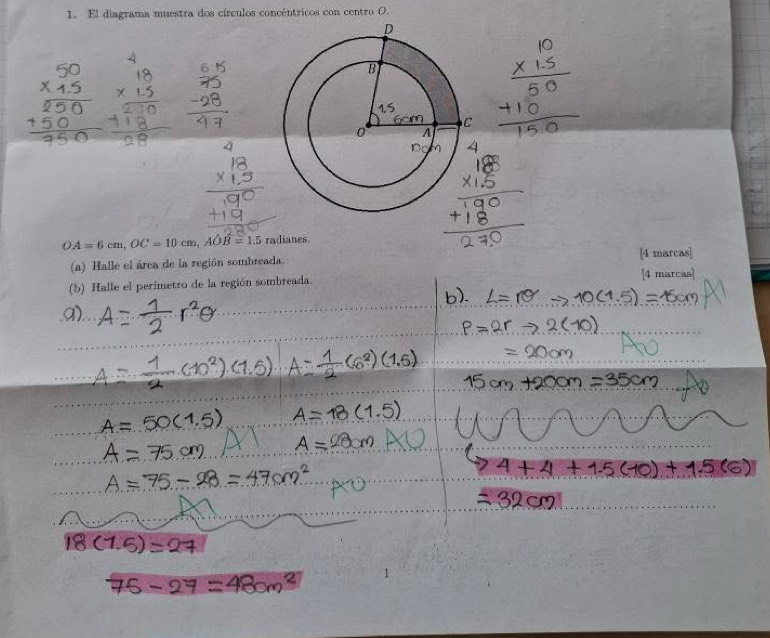 1. El diagrama muestra dos círculos concéntricos con centro O.
50
× 1.5
250
+50
750
4
18
× 1.5
+18
28
6 15
75
-28
47
4
18
× 1.5
190
+19
280
D
B
1.5
6cm
O
A
C
10cm
10
× 1.5
50
+10
150
4
18
×1.5
190
+18
270
OA = 6 cm, OC = 10 cm, AÔB = 1.5 radianes.
(a) Halle el área de la región sombreada.
[4 marcas]
(b) Halle el perímetro de la región sombreada.
[4 marcas]
a) A = 1/2 r²θ
A = 1/2 (10²) (1.5) A = 1/2 (6²) (1.5)
A = 50 (1.5) A = 18 (1.5)
A = 75 cm A1 A = 28cm A0
A = 75 - 28 = 47cm² A0
A1
18 (1.5) = 27
75 - 27 = 48cm²
b). L = rθ → 10 (1.5) = 15cm A1
P = 2r → 2 (10)
= 20cm A0
15 cm + 20cm = 35cm A0
→ 4 + 4 + 1.5 (10) + 1.5 (6)
= 32cm
1